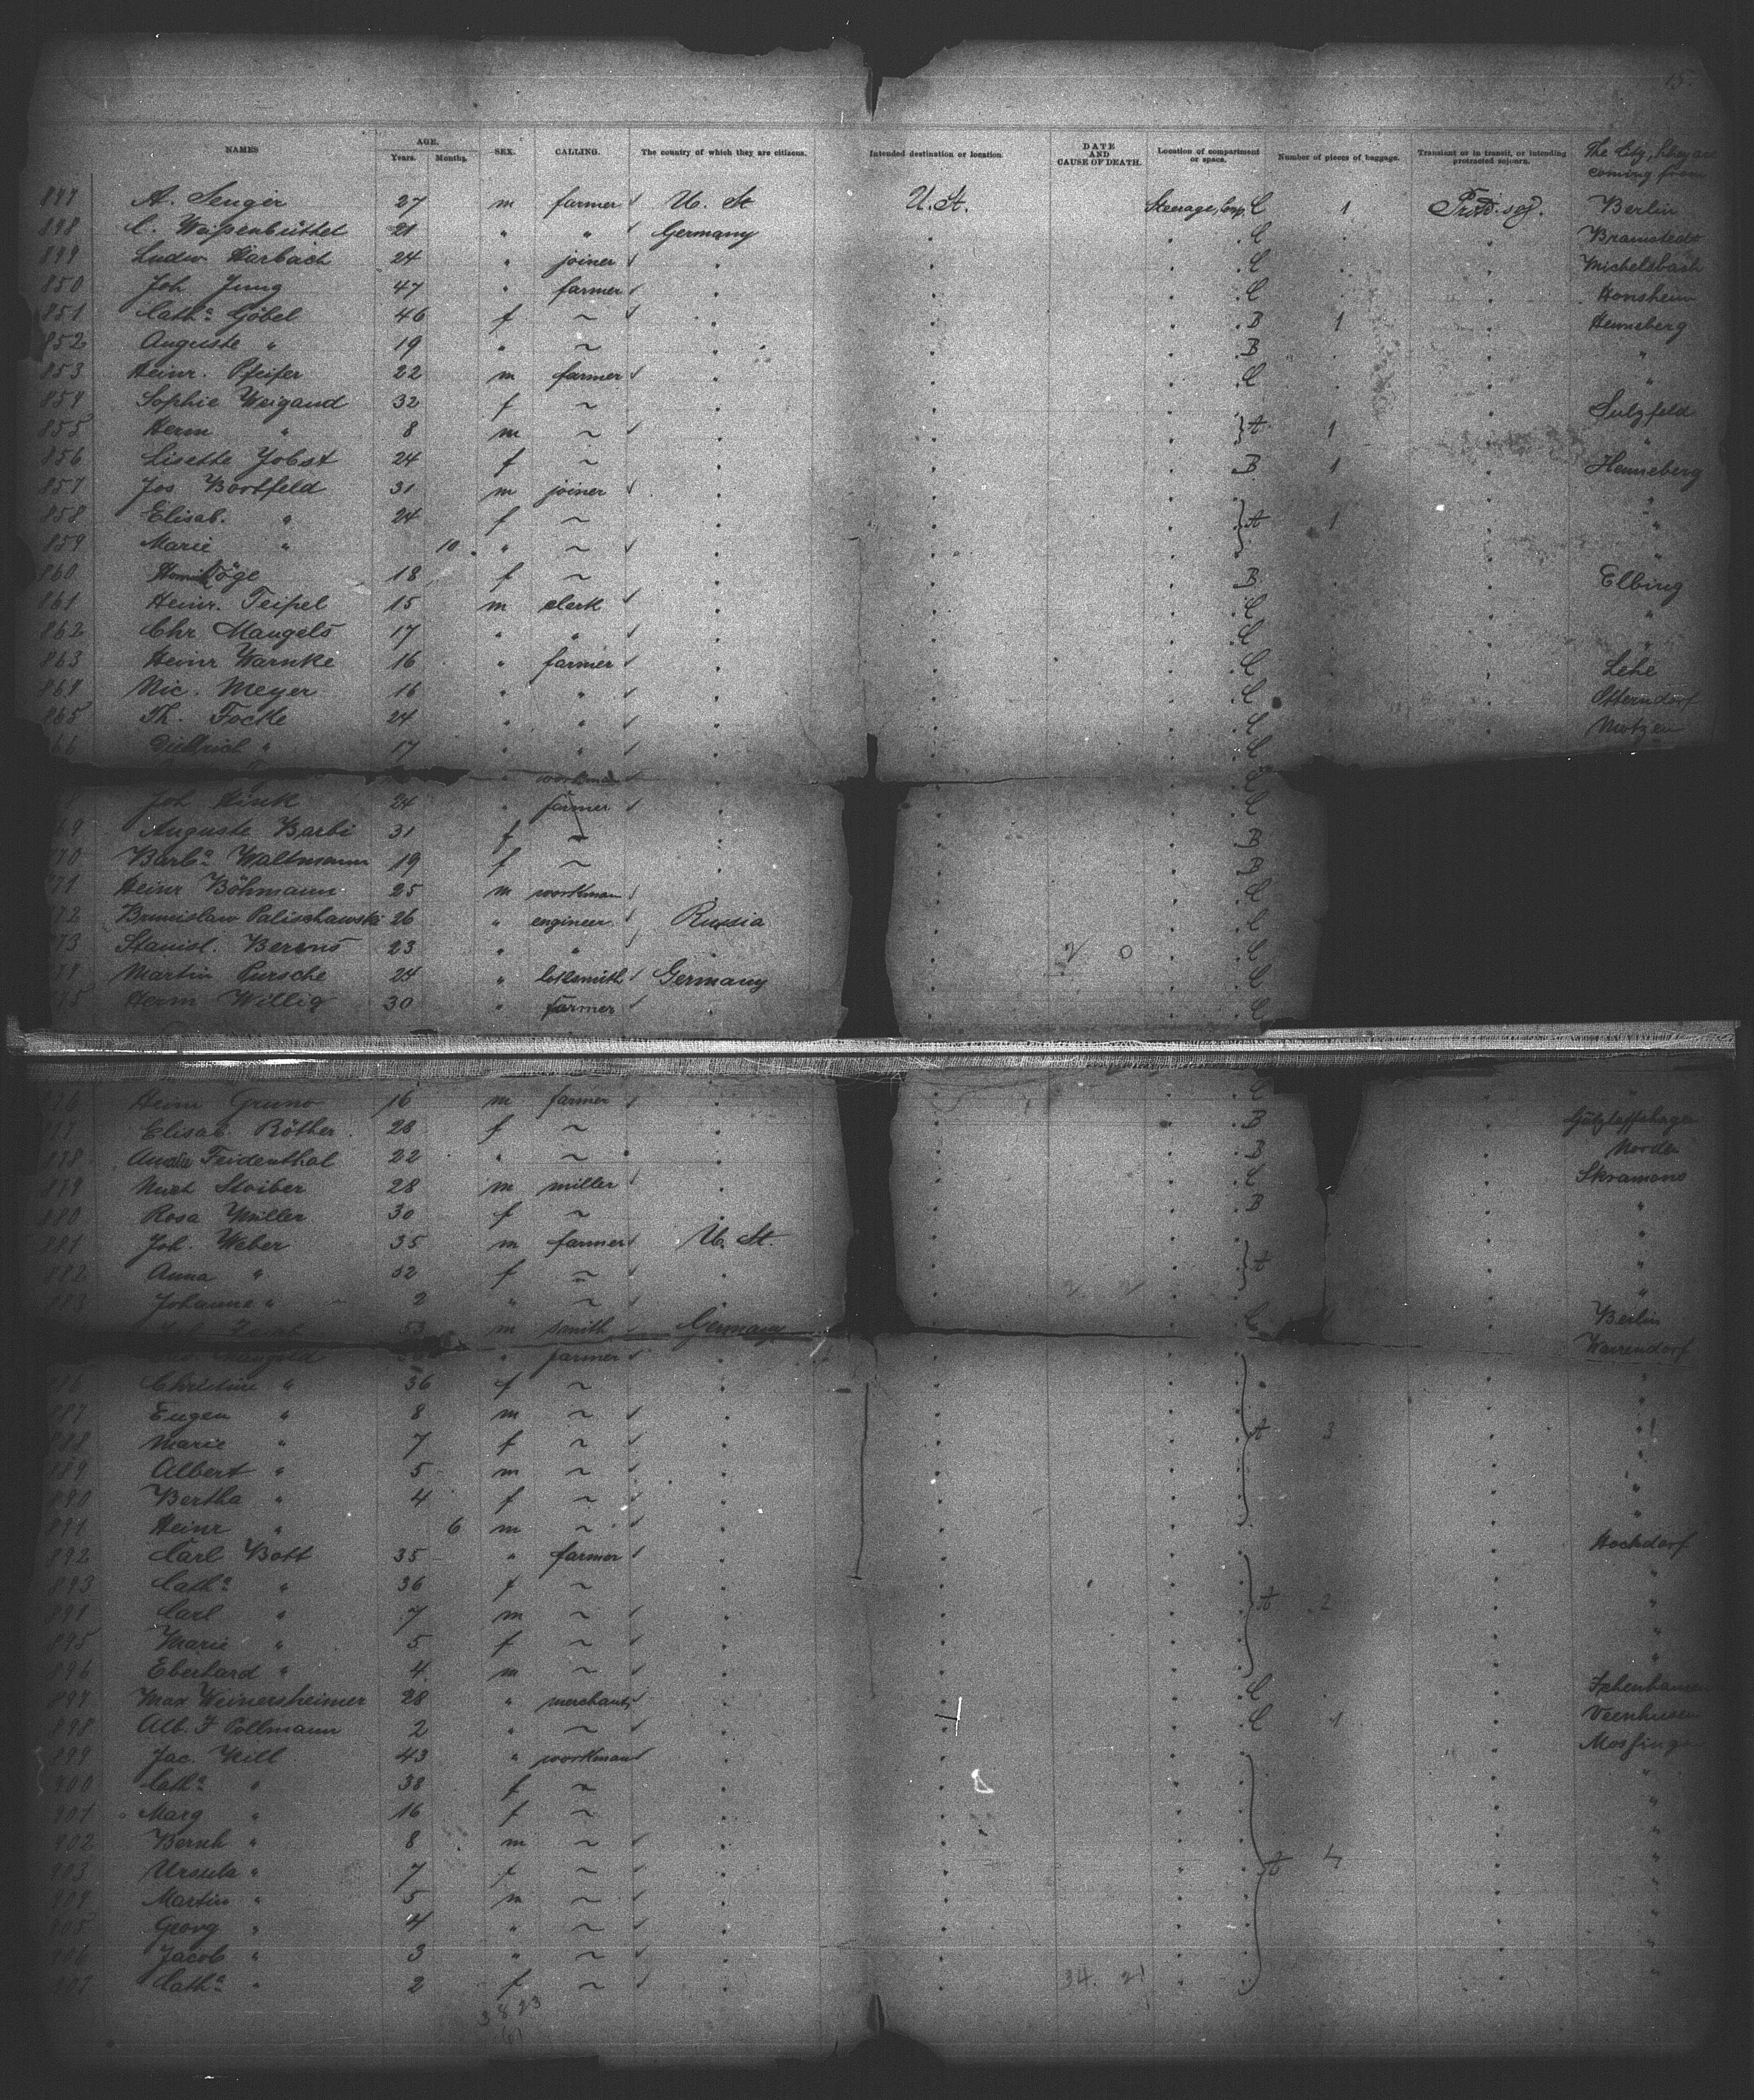 15.
NAMES AGE. Years. Months. SEX. CALLING. The country of which they are citizens. Intended destination or location DATE AND CAUSE OF DEATH. Location of compartment or space. Number of pieces of baggage. Transient or in transit, or intending protracted sojourn. The City, they are coming from
847 A. Senger 27 m farmer U. St U. St. Steerage, Comp. C 1 Berlin
848 C. 21 " " Germany C Bramstedt
849 Ludw Harbach 24 " joiner C Michelsbach
850 Joh Jung 47 " farmer C Honsheim
851 Cath.a Göbel 46 f ~ B 1 Henneberg
852 Auguste " 19 " ~ B "
853 Heinr. Pfeifer 22 m farmer C "
854 Sophie Weigand 32 f ~ Sulzfeld
855 Herm " 8 m ~ A 1 "
856 Lisette Jobst 24 f ~ B 1 Henneberg
857 Jos Bortfeld 31 m joiner "
858 Elisab. " 24 f ~ A 1 "
859 Marie " 10 " ~ "
860 18 f ~ B Elbing
861 Heinr. Teipel 15 m clerk C "
862 Chr Mangels 17 " " C "
863 Heinr Warnke 16 " farmer C Lehe
864 Nic. Meyer 16 " " C Otterndorf
865 Th. Focke 24 " " C Motzen
66 Diedrich " 17 " " C
" workman C
Joh Hink 24 " farmer C
69 Auguste Barbi 31 f ~ B
70 Barb.a Waltmann 19 f ~ B
71 Heinr Böhmann 25 m workman C
72 Brunislaw Palischawski 26 " engineer Russia C
73 Stanisl. Berens 23 " " C
74 Martin Pursche 24 " locksmith Germany C
75 Herm Willig 30 " farmer C
876 Heinr Gruno 16 m farmer C
77 Elisab. Röther 28 f ~ B
878 Feidenthal 22 " ~ B Norden
879 Mich Stoiber 28 m miller C
880 Rosa Müller 30 f ~ B "
881 Joh. Weber 35 m farmer U. St. "
882 Anna " 32 f ~ A "
883 Johanne " 2 " ~ "
53 m smith Germany C Berlin
" farmer Warrendorf
886 Christine " 36 f ~ "
887 Eugen " 8 m ~ "
888 Marie " 7 f ~ A 3 "
889 Albert " 5 m ~ "
890 Bertha " 4 f ~ "
891 Heinr " 6 m ~ "
892 Carl Bott 35 " farmer Hochdorf
893 Cath.a " 36 f ~ "
894 Carl " 7 m ~ A 2 "
895 Marie " 5 f ~ "
896 Eberhard " 4 m ~ "
897 Max Weinersheimer 28 " merchant C
898 Alb. F Pollmann 2 " ~ C 1 Veenhusen
899 Jac. Will 43 " workman
900 Cath.a " 38 f ~ "
901 Marg " 16 f ~ "
902 Bernh " 8 m ~ "
903 Ursula " 7 f ~ A 4 "
904 Martin " 5 m ~ "
905 Georg " 4 " ~ "
906 Jacob " 3 " ~ "
907 Cath.a " 2 f ~ 34. 21 "
38 23